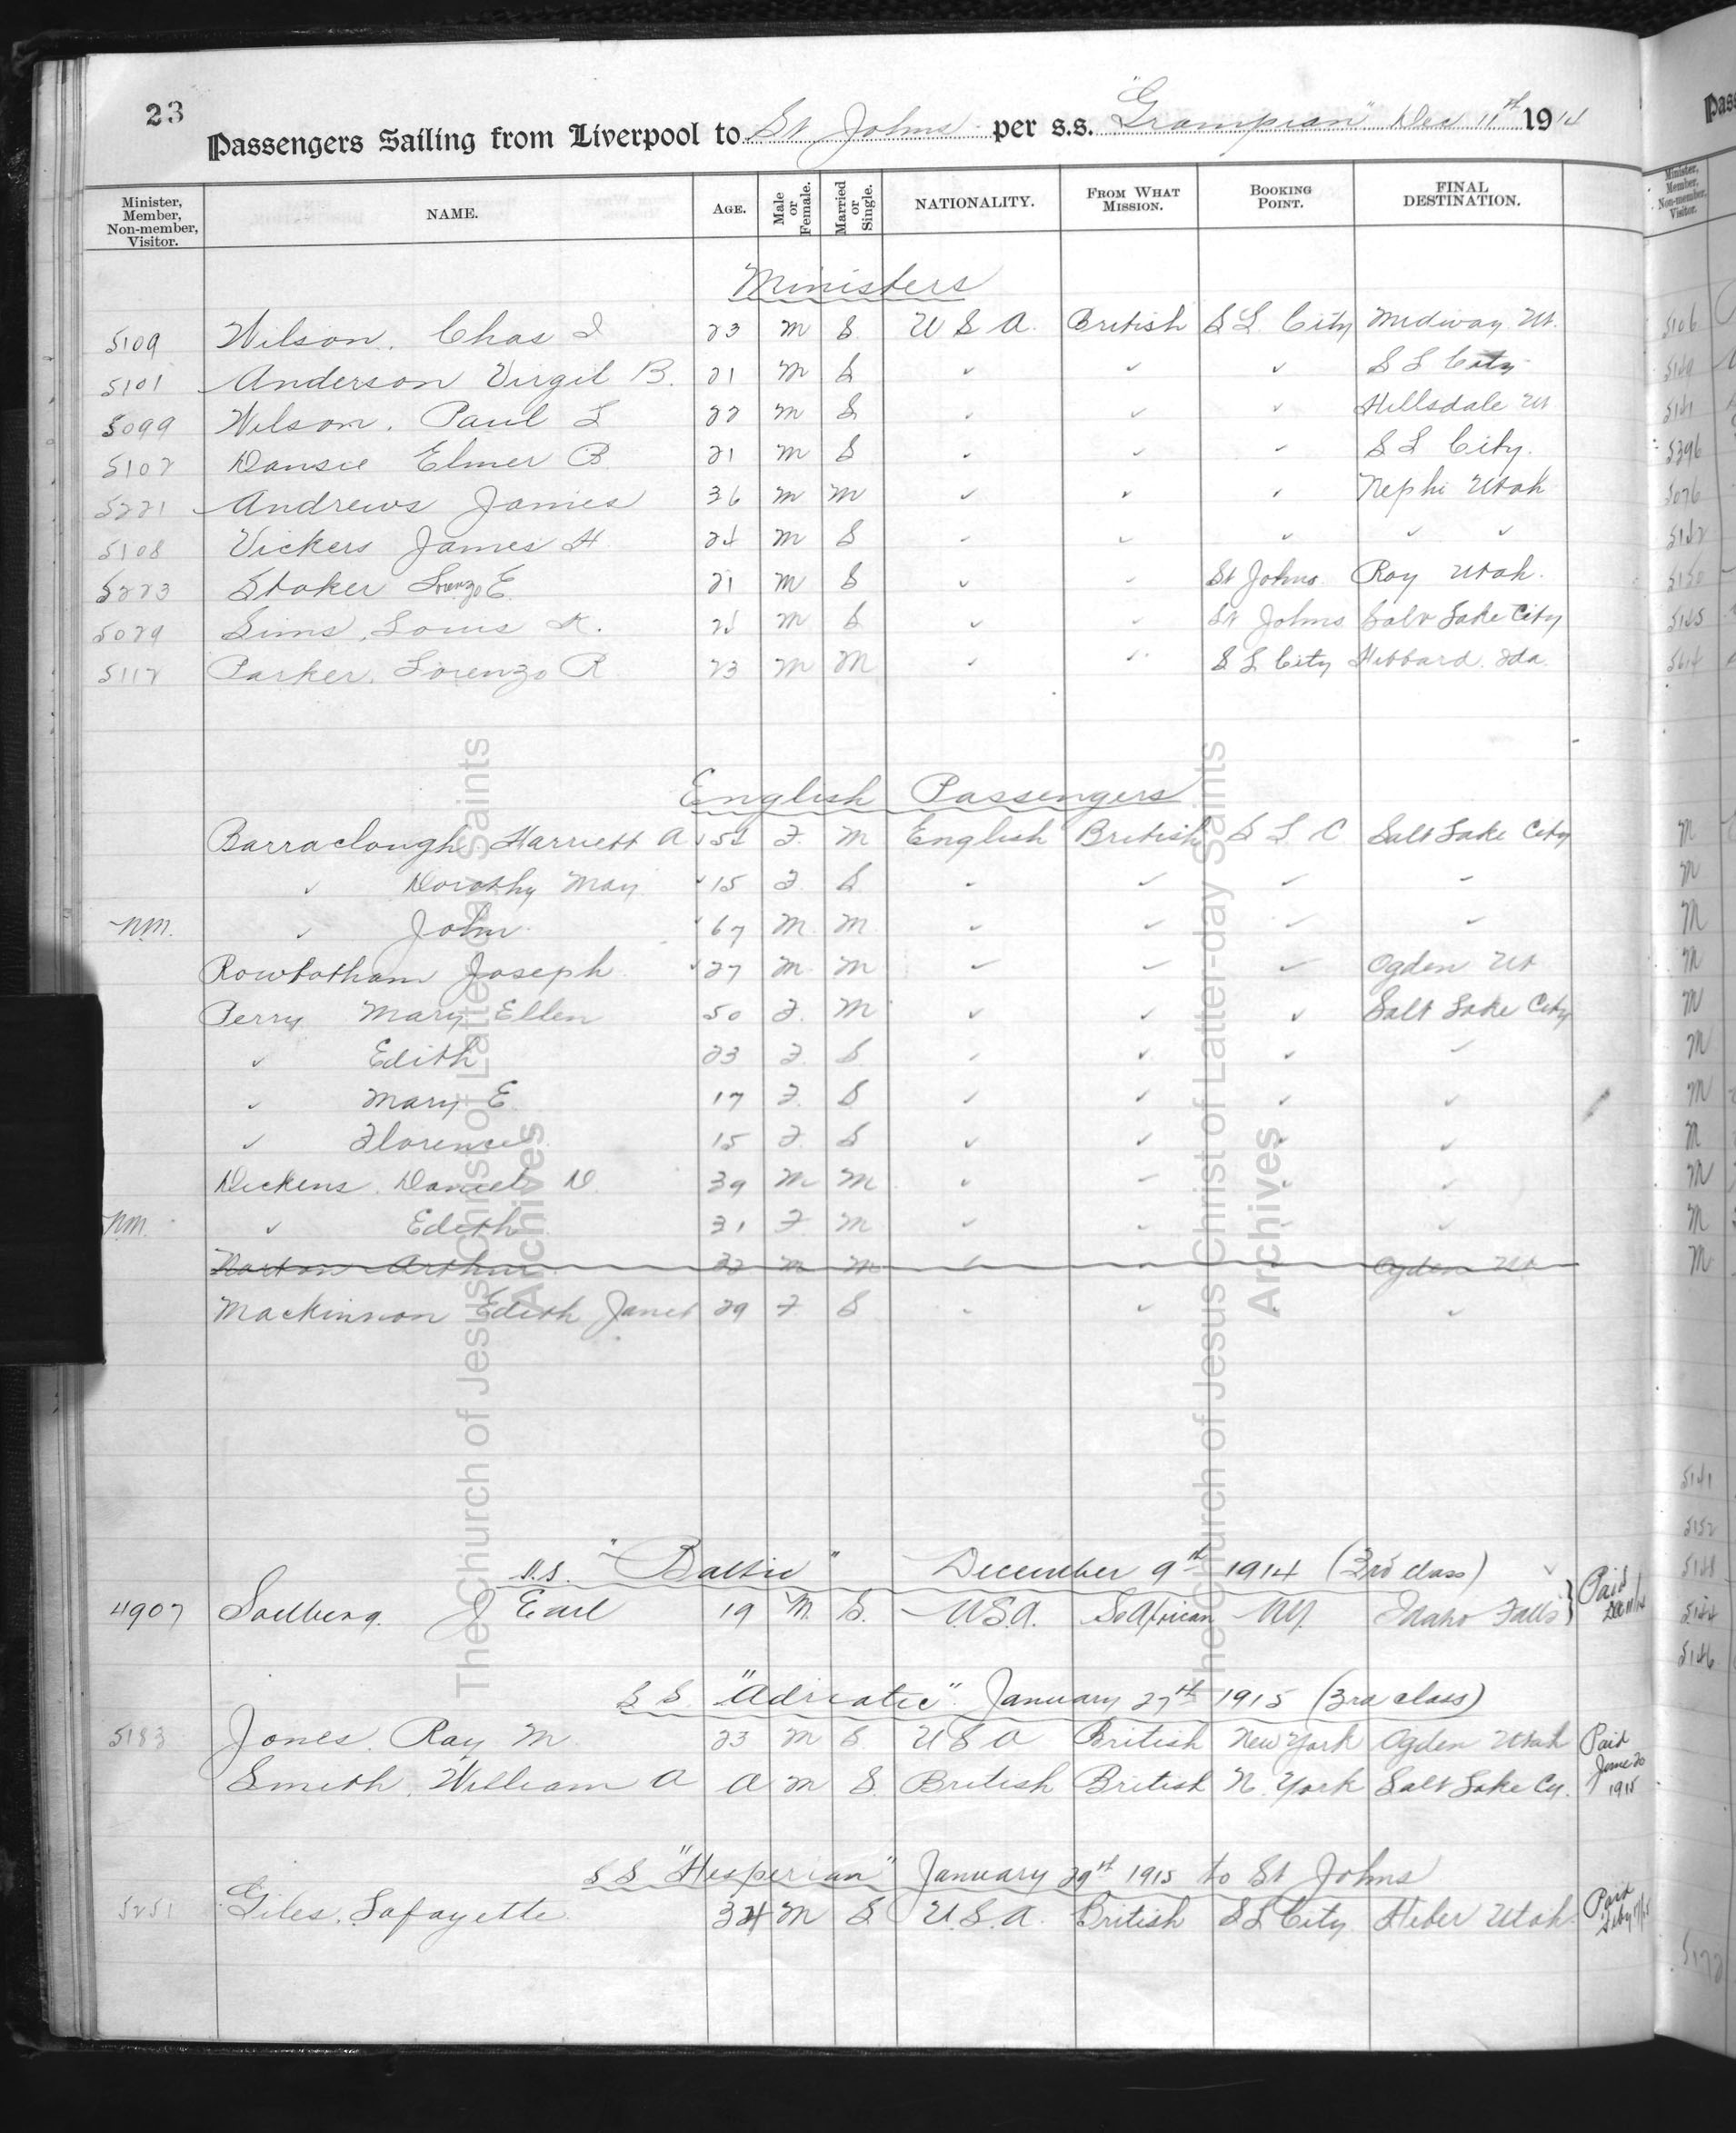 23
Passengers Sailing from Liverpool to St Johns per s.s. "Grampian" Dec 11th 1914
Minister, Member, Non-member, Visitor. NAME. AGE. Male or Female. Married or Single. NATIONALITY. FROM WHAT MISSION. BOOKING POINT. FINAL DESTINATION.
Ministers
5109 Wilson, Chas I 23 M S. U S A. British S L City Midway Ut.
5101 Anderson Virgil B. 21 M S ✓ ✓ ✓ S L City
5099 Wilson, Paul L 22 M S ✓ ✓ ✓ Hillsdale Ut
5102 Dansie Elmer B. 21 M S ✓ ✓ ✓ S L City.
5221 Andrews James 36 M M ✓ ✓ ✓ Nephi Utah
5108 Vickers James H 24 M S ✓ ✓ ✓ ✓ ✓
5223 Stoker Lorenzo E. 21 M S ✓ ✓ St Johns Roy Utah.
5029 Sims, Louis K. M S ✓ ✓ St Johns Salt Lake City
5112 Parker, Lorenzo R 23 M M ✓ ✓ S L City Hibbard. Ida.
English Passengers
Barraclough Harriett A ✓ F. M English British S L C Salt Lake City
✓ Dorothy May ✓ 15 F. S ✓ ✓ ✓ ✓
N.M. ✓ John ✓ 67 M. M ✓ ✓ ✓ ✓
Rowbotham Joseph ✓ 27 M. M ✓ ✓ ✓ Ogden Ut
Perry Mary Ellen 50 F. M ✓ ✓ ✓ Salt Lake City
✓ Edith 23 F. S. ✓ ✓ ✓ ✓
✓ Mary E. 17 F. S ✓ ✓ ✓ ✓
✓ Florence 15 F. S ✓ ✓ ✓ ✓
Dickens, Daniel D. 39 M M ✓ ✓ ✓ ✓
N.M. ✓ Edith 31 F M ✓ ✓ ✓ ✓
Norton Arthur 32 M M ✓ ✓ Ogden Ut
Mackinnon Edith Janet 29 F S ✓ ✓ ✓ ✓
s.s. "Baltic" December 9th 1914 (3rd class)
4907 Soelberg. J Earl 19 M. S. U.S.A. So African N.Y. Idaho Falls } Paid
S S "Adriatic" January 27th 1915 (3rd class)
5183 Jones, Ray M 23 M S. U S A British New York Ogden Utah Paid
Smith, William A A M S. British British N. York Salt Lake Cy. 1915
S S "Hesperian" January 29th 1915 to St Johns
5251 Giles, Lafayette 34 M S U.S.A. British S L City Heber Utah. Paid
The Church of Jesus Christ of Latter-day Saints
Archives
The Church of Jesus Christ of Latter-day Saints
Archives